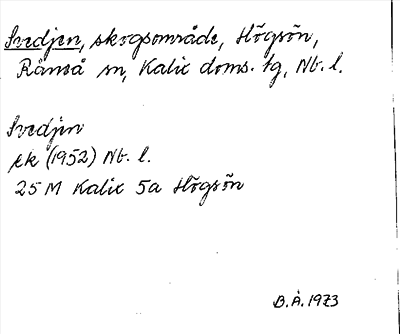 Svedjen, skogsområde, Högsön,
Råneå sn, Kalix doms. tg, Nb. l.
Svedjen
ek (1952) Nb. l.
25 M Kalix 5a Högsön
B.Å. 1973